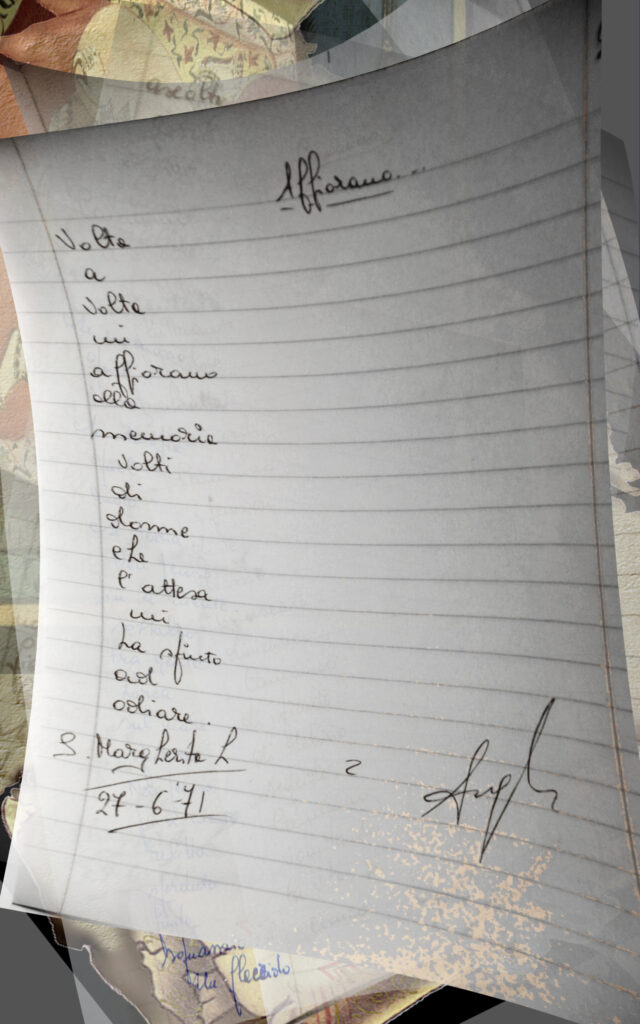 ascolti
Affiorano...
Volte
a
Volte
mi
affiorano
alla
memoria
Volti
di
donne
che
l'attesa
mi
ha spinto
ad
odiare.
S. Margherita L
27-6-71
2